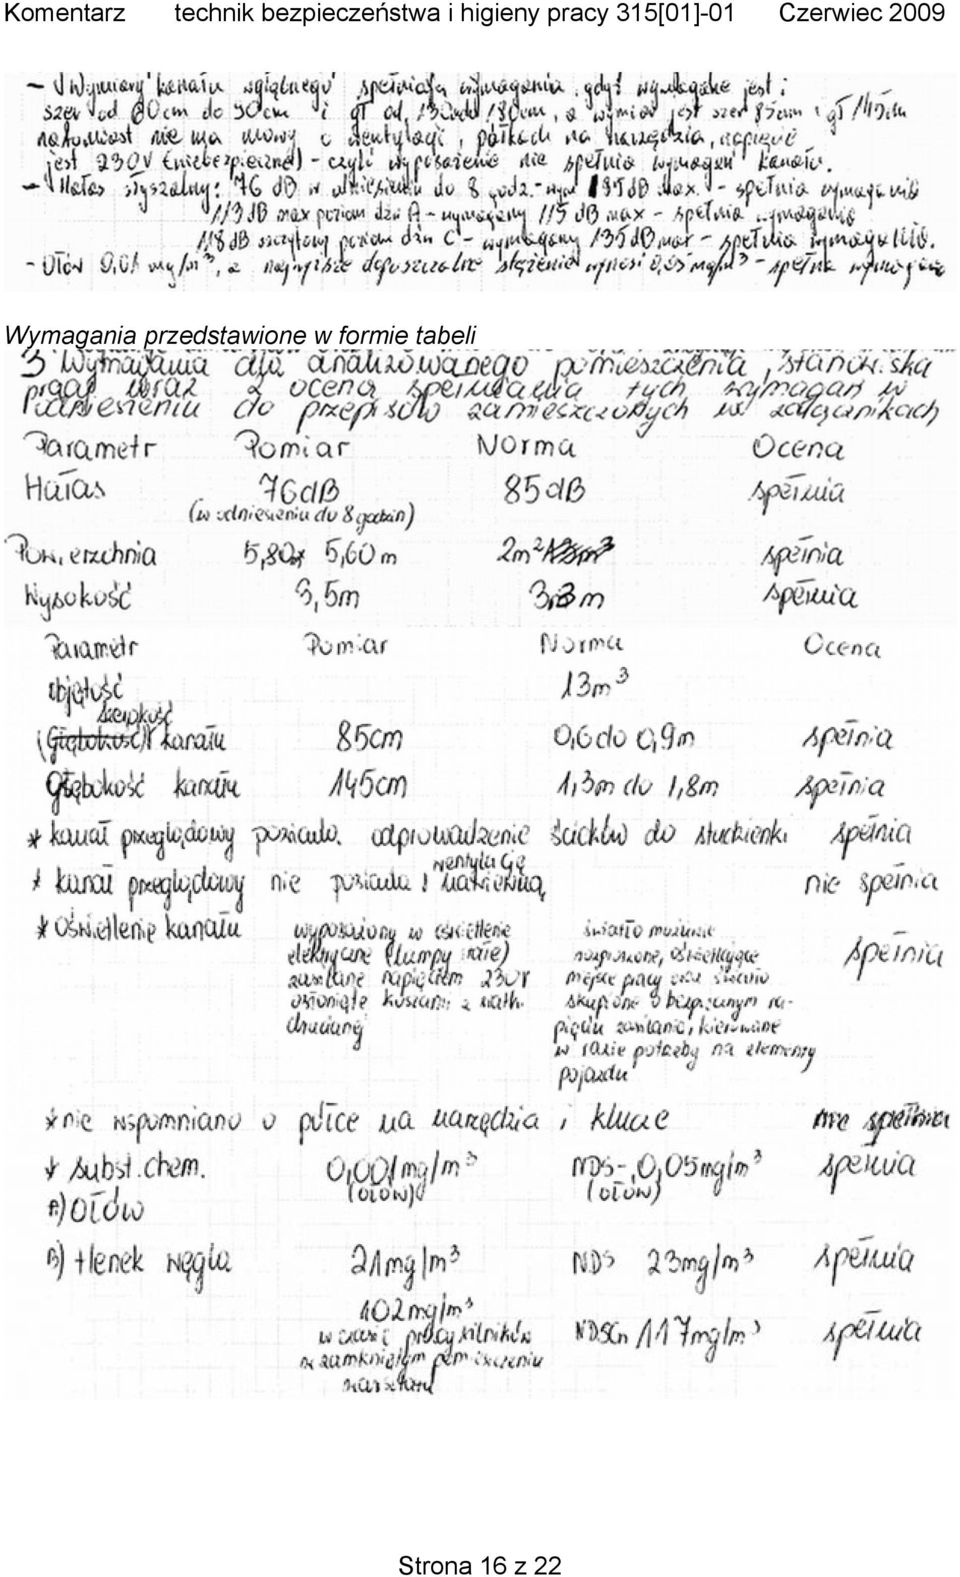 Komentarz technik bezpieczeństwa i higieny pracy 315[01]-01 Czerwiec 2009
- Wymiary kanału spełniają wymagania, gdyż wymagane jest:
szer od 60cm do 90cm i gł od 130 do 180cm, a wymiar jest szer 85cm i gł 145cm
natomiast nie ma mowy o wentylacji, półkach na narzędzia, napięcie
jest 230V (niebezpieczne) - czyli wyposażenie nie spełnia wymagań kanału.
- Hałas słyszalny: 76 dB w odniesieniu do 8 godz. - wym 85dB max. - spełnia wymagania
113dB max poziom dźw A - wymagany 115 dB max - spełnia wymagania
118dB szczytowy poziom dźw C - wymagany 135dB max - spełnia wymagania.
- Ołów 0,01 mg/m³, a najwyższe dopuszczalne stężenie wynosi 0,05 mg/m³ - spełnia wymagania
Wymagania przedstawione w formie tabeli
3 Wymagania dla analizowanego pomieszczenia, stanowiska
pracy wraz z oceną spełniania tych wymagań w
odniesieniu do przepisów zamieszczonych w załącznikach
Parametr Pomiar Norma Ocena
Hałas 76dB 85dB spełnia
(w odniesieniu do 8 godzin)
Powierzchnia 5,80x 5,60m 2m² spełnia
Wysokość 3,5m 3,3m spełnia
Parametr Pomiar Norma Ocena
objętość 13m³
szerokość
(Głębokość) kanału 85cm 0,6 do 0,9m spełnia
Głębokość kanału 145cm 1,3m do 1,8m spełnia
* kanał przeglądowy posiada odprowadzenie ścieków do studzienki spełnia
wentylację
* kanał przeglądowy nie posiada nie spełnia
* Oświetlenie kanału wyposażony w oświetlenie światło możliwie
elektryczne (lampy ) rozproszone, oświetlające
zasilane napięciem 230V miejsce pracy oraz światło
osłonięte koszami z siatki skupione o bezpiecznym na-
drucianej pięciu zasilania, kierowane
w razie potrzeby na elementy
pojazdu
spełnia
* nie wspomniano o półce na narzędzia i klucze nie spełnia
* subst. chem. 0,001mg/m³ NDS- 0,05mg/m³ spełnia
(ołów) (ołów)
A) ołów
B) tlenek węgla 21mg/m³ NDS 23mg/m³ spełnia
102mg/m³
w czasie pracy silników NDSCh 117mg/m³ spełnia
w zamkniętym pomieszczeniu
warsztatu
Strona 16 z 22